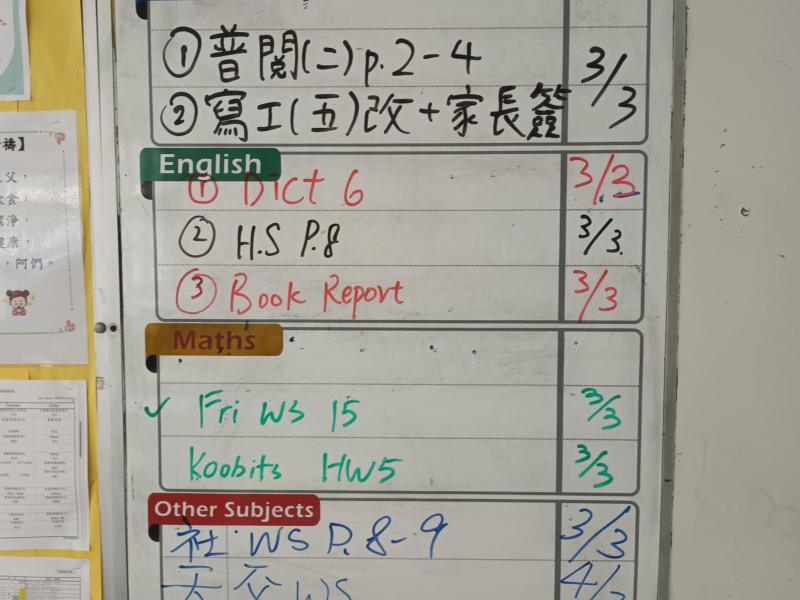 ①普閱(二)p.2-4
3/3
②寫工(五)改+家長簽
English
① Dict 6 3/3
② H.S P.8 3/3
③ Book Report 3/3
Maths
✓ Fri WS 15 3/3
Koobits HW5 3/3
Other Subjects
社 WS P.8-9 3/3
WS 4/
禱】
父,
食,
淨,
康,
,阿們。